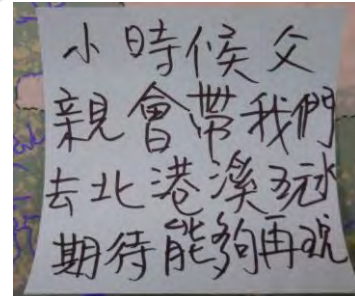 小時候父
親會帶我們
去北港溪玩水
期待能夠再現